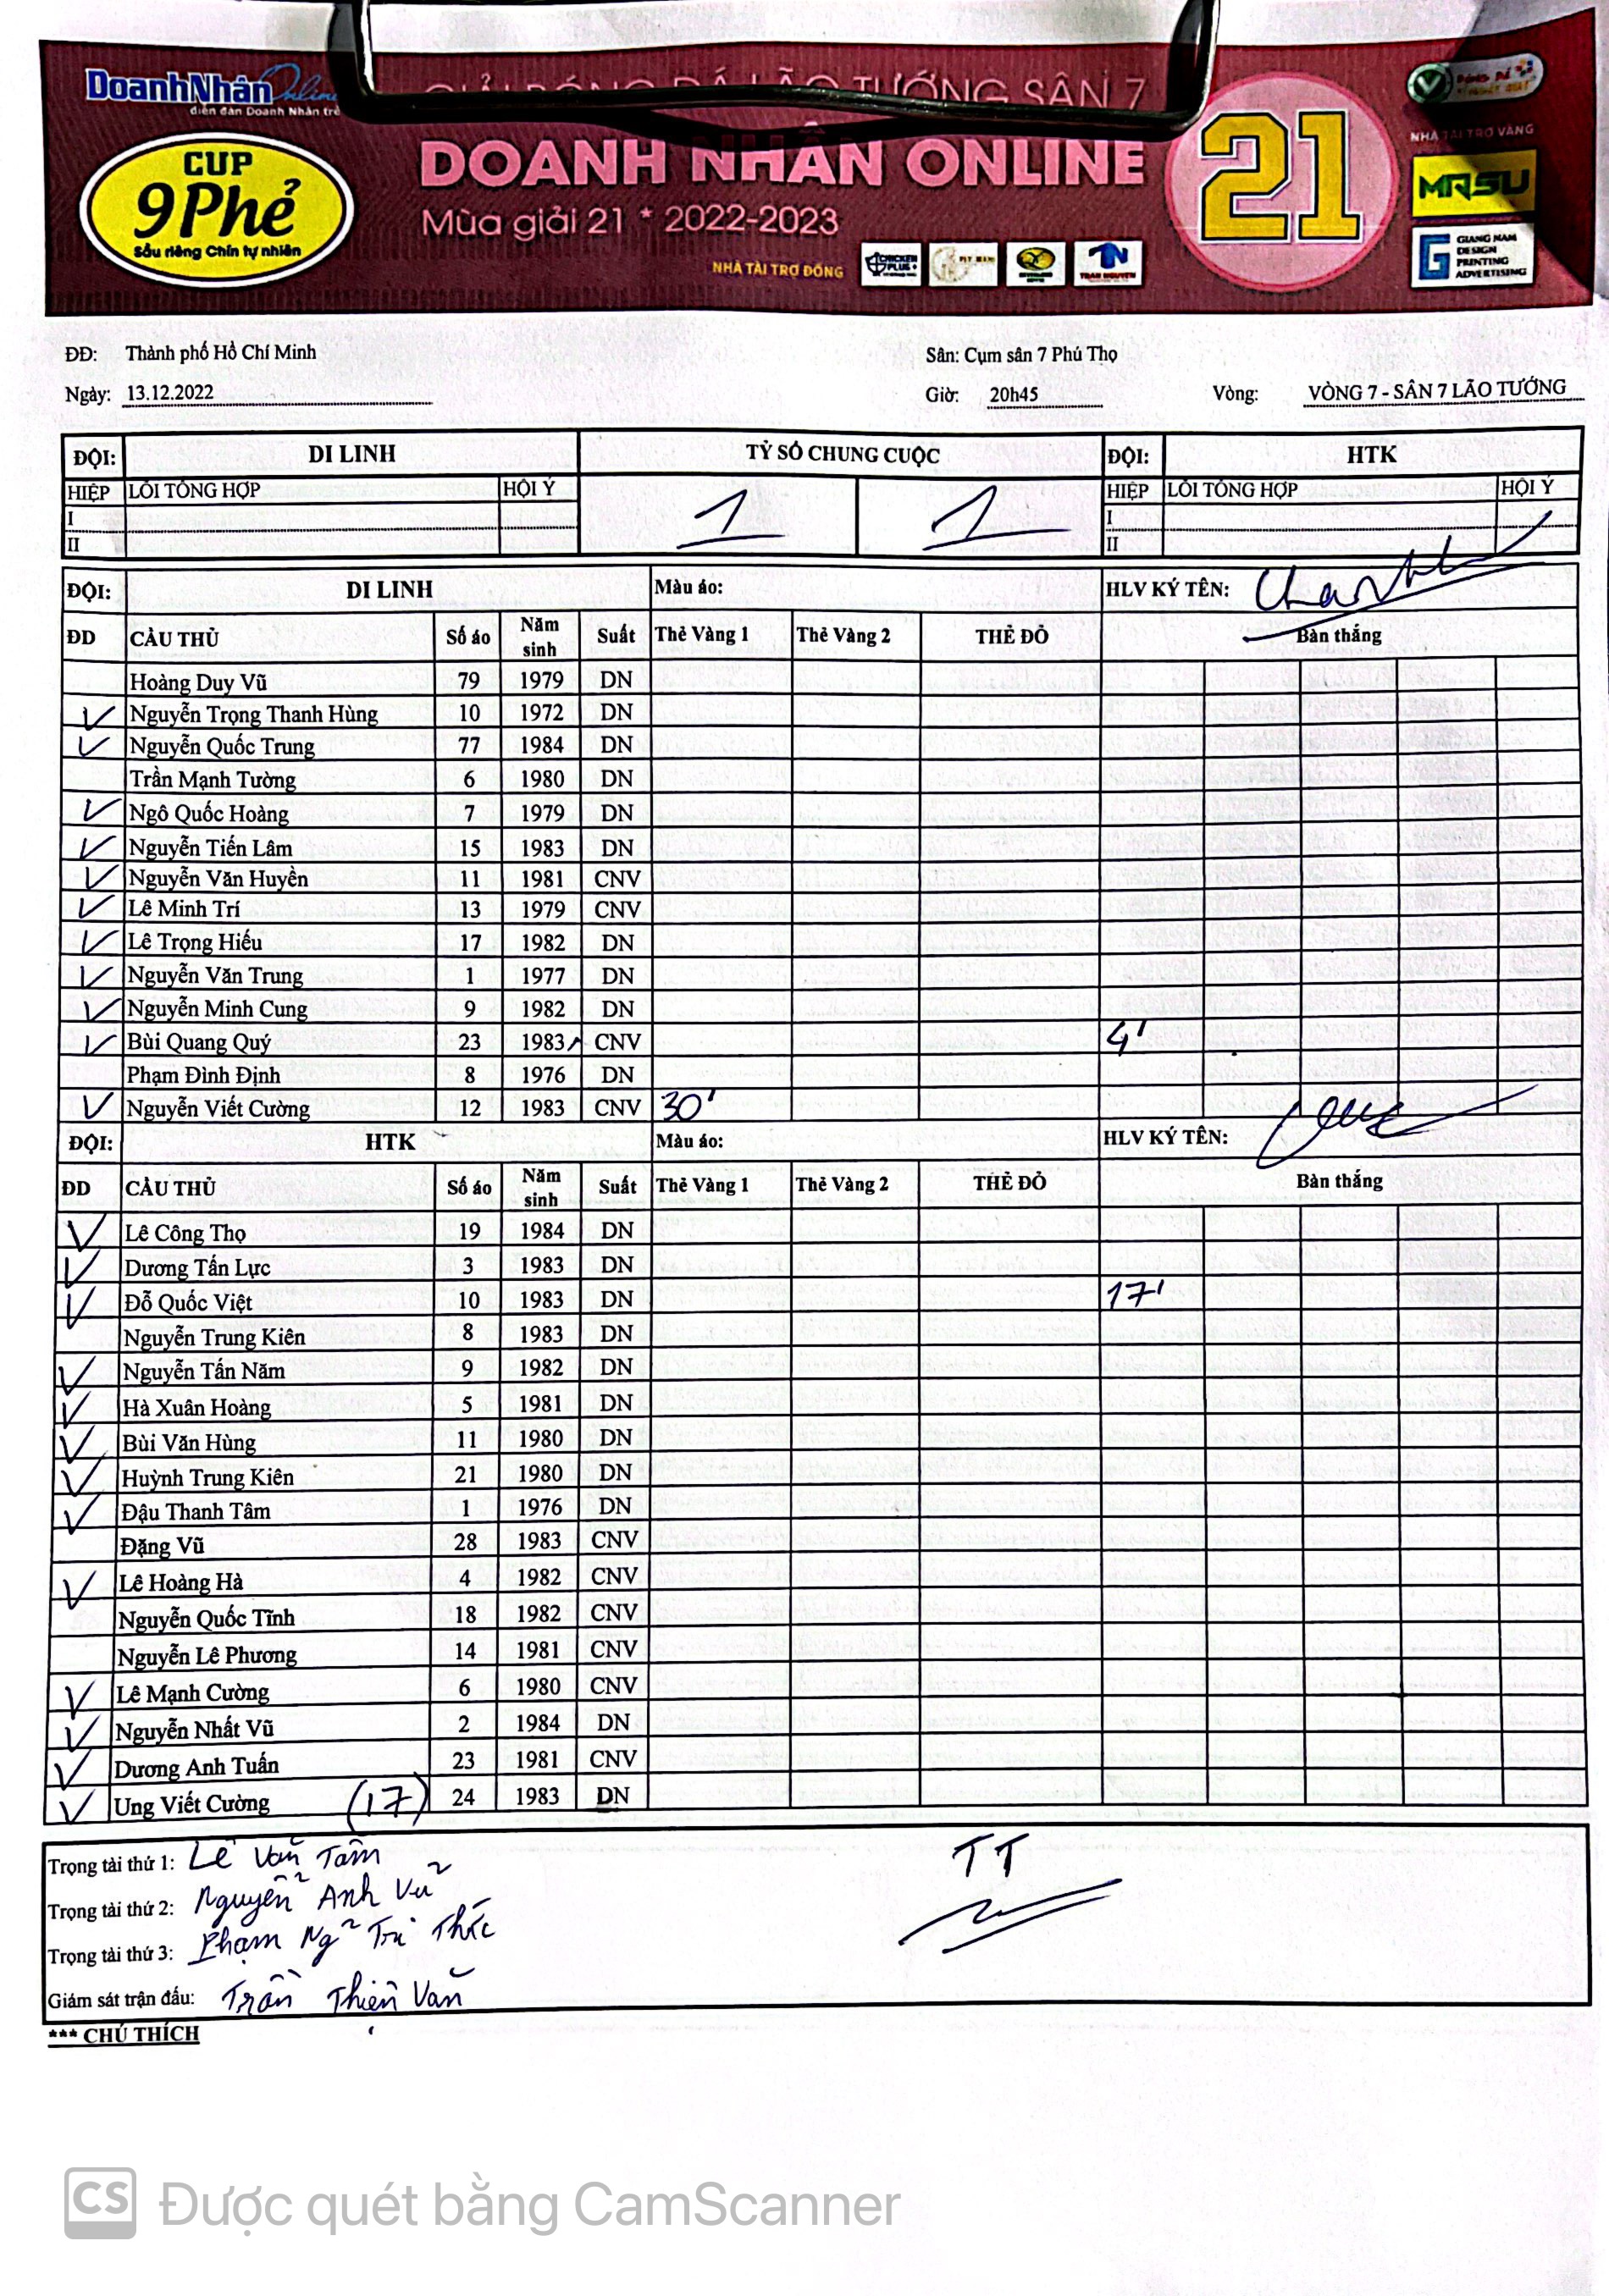 DoanhNhân Online
diễn đàn Doanh Nhân trẻ
GIẢI BÓNG ĐÁ LÃO TƯỚNG SÂN 7
DOANH NHÂN ONLINE
Mùa giải 21 * 2022-2023
CUP
9Phẻ
Sầu riêng Chín tự nhiên
21
NHÀ TÀI TRỢ VÀNG
MRSU
GIANG NAM
DESIGN
PRINTING
ADVERTISING
NHÀ TÀI TRỢ ĐỒNG
CHICKEN PLUS
TRAN NGUYEN
ĐĐ: Thành phố Hồ Chí Minh Sân: Cụm sân 7 Phú Thọ
Ngày: 13.12.2022 Giờ: 20h45 Vòng: VÒNG 7 - SÂN 7 LÃO TƯỚNG
ĐỘI: DI LINH TỶ SỐ CHUNG CUỘC ĐỘI: HTK
HIỆP LỖI TỔNG HỢP HỘI Ý 1 1 HIỆP LỖI TỔNG HỢP HỘI Ý
I I
II II
ĐỘI: DI LINH Màu áo: HLV KÝ TÊN:
ĐD CẦU THỦ Số áo Năm sinh Suất Thẻ Vàng 1 Thẻ Vàng 2 THẺ ĐỎ Bàn thắng
Hoàng Duy Vũ 79 1979 DN
Nguyễn Trọng Thanh Hùng 10 1972 DN
Nguyễn Quốc Trung 77 1984 DN
Trần Mạnh Tường 6 1980 DN
Ngô Quốc Hoàng 7 1979 DN
Nguyễn Tiến Lâm 15 1983 DN
Nguyễn Văn Huyền 11 1981 CNV
Lê Minh Trí 13 1979 CNV
Lê Trọng Hiếu 17 1982 DN
Nguyễn Văn Trung 1 1977 DN
Nguyễn Minh Cung 9 1982 DN
Bùi Quang Quý 23 1983 CNV 4'
Phạm Đình Định 8 1976 DN
Nguyễn Viết Cường 12 1983 CNV 30'
ĐỘI: HTK Màu áo: HLV KÝ TÊN:
ĐD CẦU THỦ Số áo Năm sinh Suất Thẻ Vàng 1 Thẻ Vàng 2 THẺ ĐỎ Bàn thắng
Lê Công Thọ 19 1984 DN
Dương Tấn Lực 3 1983 DN
Đỗ Quốc Việt 10 1983 DN 17'
Nguyễn Trung Kiên 8 1983 DN
Nguyễn Tấn Năm 9 1982 DN
Hà Xuân Hoàng 5 1981 DN
Bùi Văn Hùng 11 1980 DN
Huỳnh Trung Kiên 21 1980 DN
Đậu Thanh Tâm 1 1976 DN
Đặng Vũ 28 1983 CNV
Lê Hoàng Hà 4 1982 CNV
Nguyễn Quốc Tĩnh 18 1982 CNV
Nguyễn Lê Phương 14 1981 CNV
Lê Mạnh Cường 6 1980 CNV
Nguyễn Nhất Vũ 2 1984 DN
Dương Anh Tuấn 23 1981 CNV
Ung Viết Cường (17) 24 1983 DN
Trọng tài thứ 1: Lê Văn Tâm TT
Trọng tài thứ 2: Nguyễn Anh Vũ
Trọng tài thứ 3: Phạm Ng~ Tri Thức
Giám sát trận đấu: Trần Thiện Văn
*** CHÚ THÍCH
CS Được quét bằng CamScanner